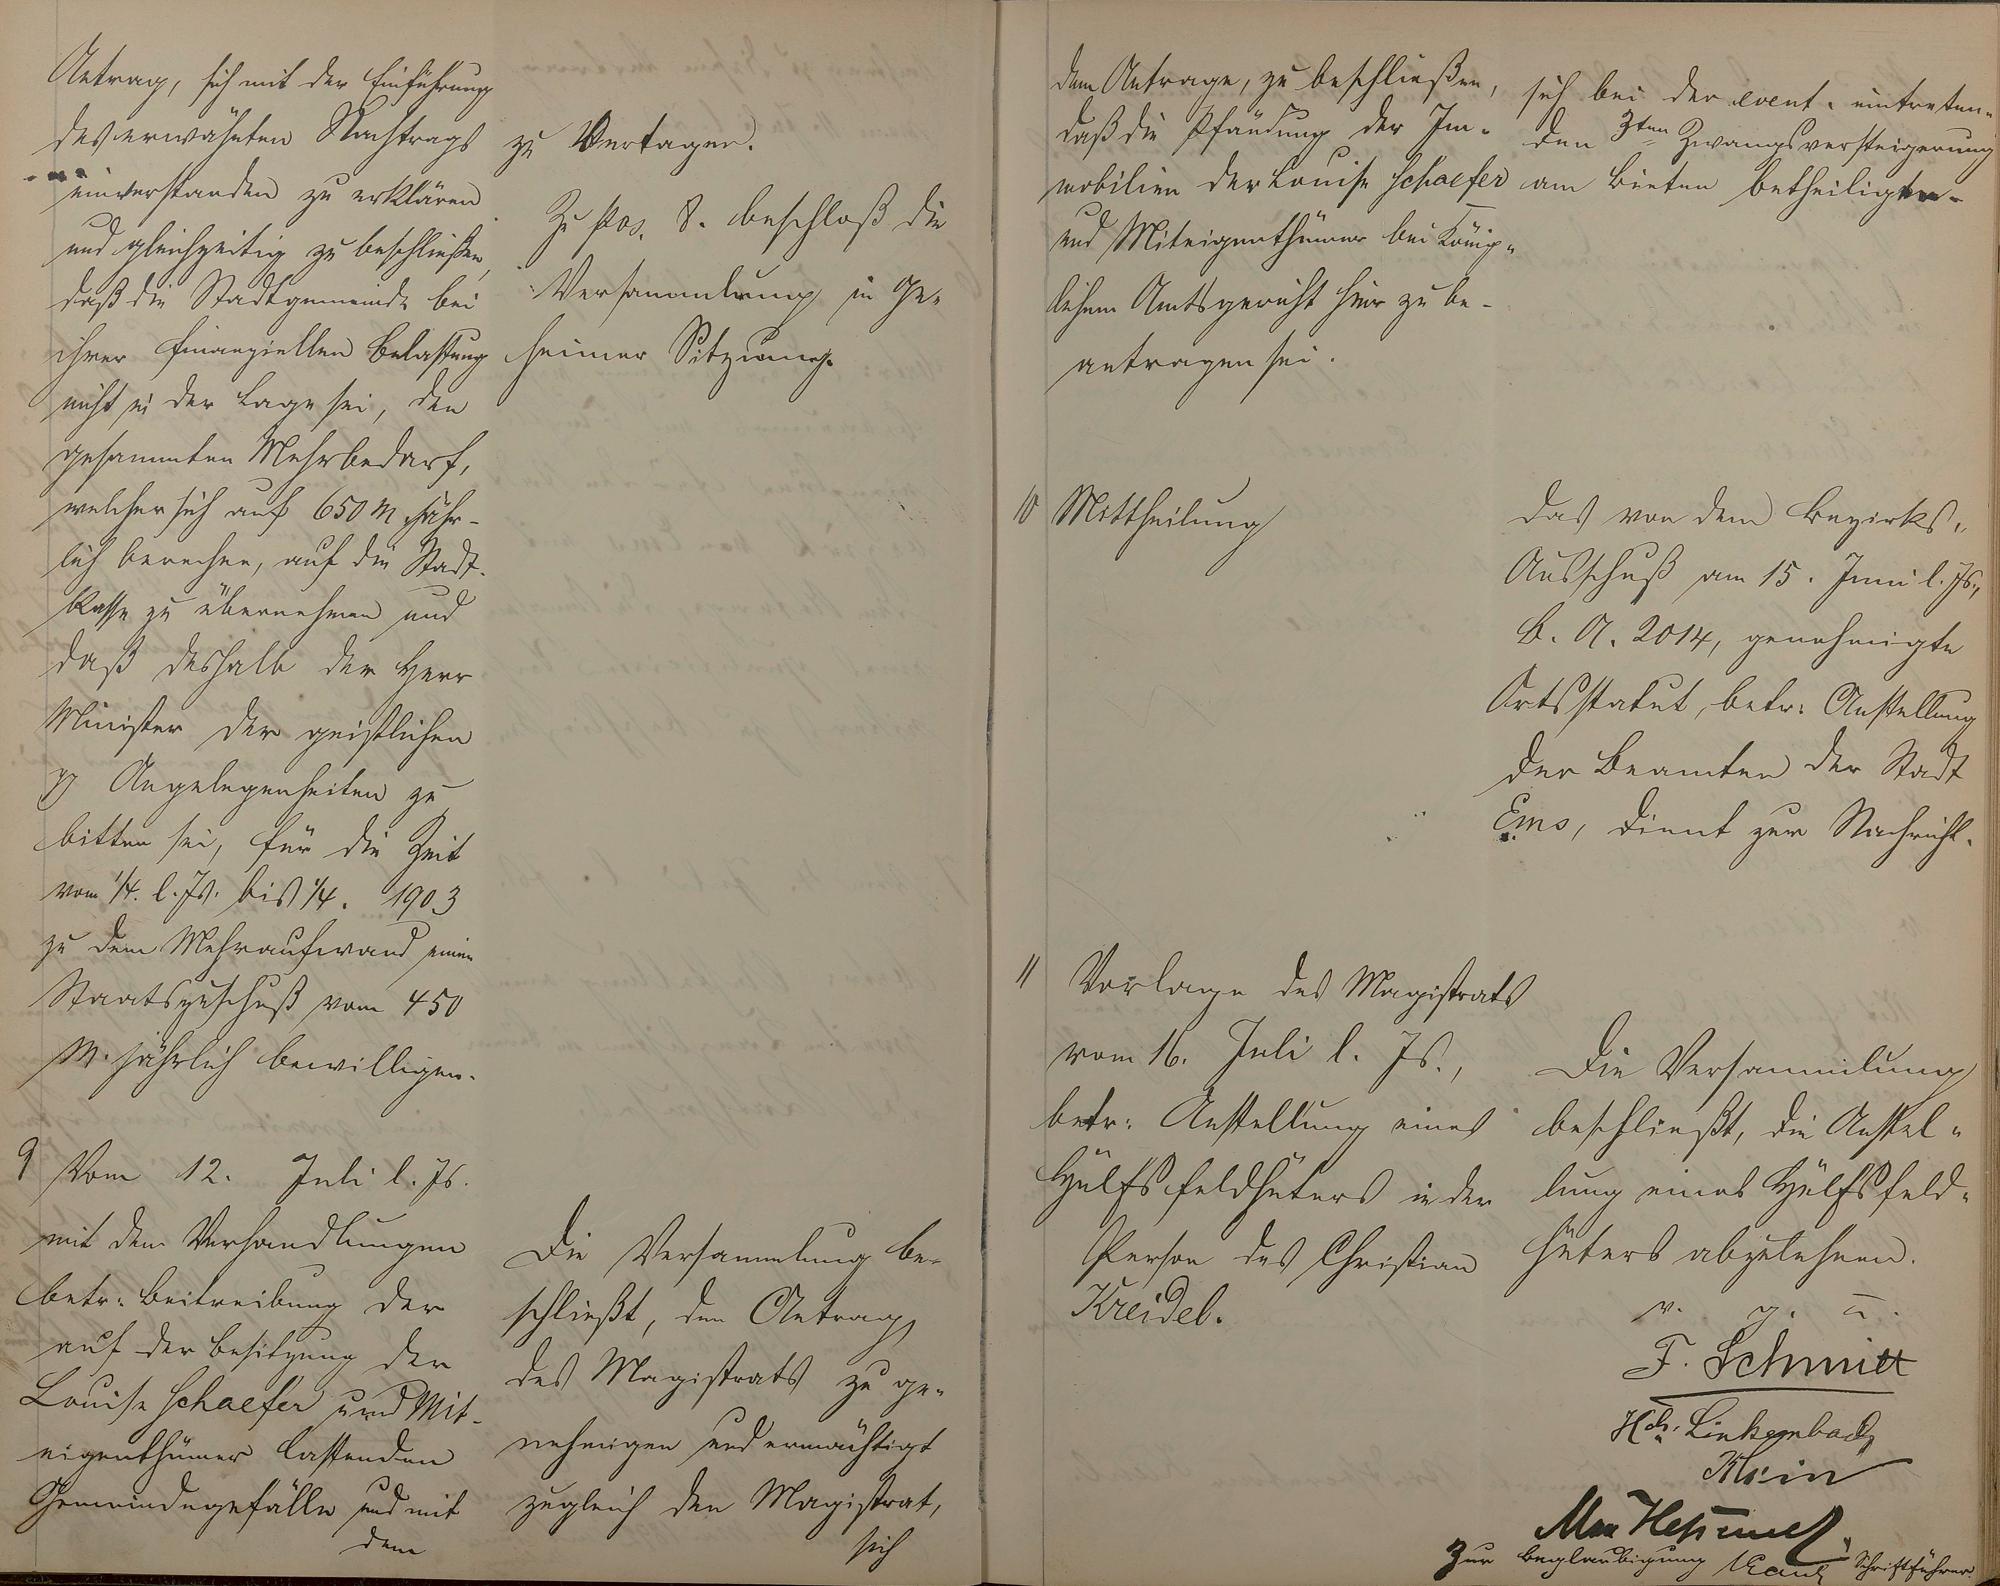 Antrag, sich mit der Einführung
des erwähnten Nachtrags
einverstanden zu erklären
und gleichzeitig zu beschließen,
daß die Stadtgemeinde bei
ihrer finanziellen Belastung
nicht in der Lage sei, den
gesammten Mehrbedarf,
welcher sich auf 650 M jähr-
lich berechne, auf die Stadt-
kasse zu übernehmen und
daß deshalb der Herr
Minister der geistlichen
pp Angelegenheiten zu
bitten sei, für die Zeit
vom 1/4. l. Js. bis 1/4. 1903
zu dem Mehraufwand einen
Staatszuschuß vom 450
M. jährlich bewilligen.
9 Vom 12. Juli l. Js.
mit den Verhandlungen
betr. Beitreibung der
auf der Besitzung der
Louise Schaefer und Mit-
eigenthümer lastenden
Gemeindegefälle und mit
dem
zu Vertagen.
Zu pos. 8. beschloß die
Versammlung in Ge-
heimer Sitzung.
Die Versammlung be-
schließt, den Antrag
des Magistrats zu ge-
nehmigen und ermächtigt
zugleich den Magistrat,
sich
dem Antrage, zu beschließen,
daß die Pfändung der Im-
mobilien der Louise Schaefer
und Miteigenthümer bei König-
lichem Amtsgericht hier zu be-
antragen sei.
sich bei der event. eintreten-
den 3ten Zwangsversteigerung
am Bieten betheiligen.
10 Mittheilung
Das von dem Bezirks-
Ausschuß am 15. Juni l. Js.,
B. A. 2014, genehmigte
Ortsstatut, betr. Anstellung
der Beamten der Stadt
Ems, dient zur Nachricht.
11 Vorlage des Magistrats
vom 16. Juli l. Js.,
betr. Anstellung eines
Hülfsfeldhüters in der
Person des Christian
Kreidel.
Die Versammlung
beschließt, die Anstel-
lung eines Hülfsfeld-
hüters abzulehnen.
v. g. u.
F. Schmitt
Hch. Linkenbach
Klein
Max
Zur Beglaubigung Schriftführer.